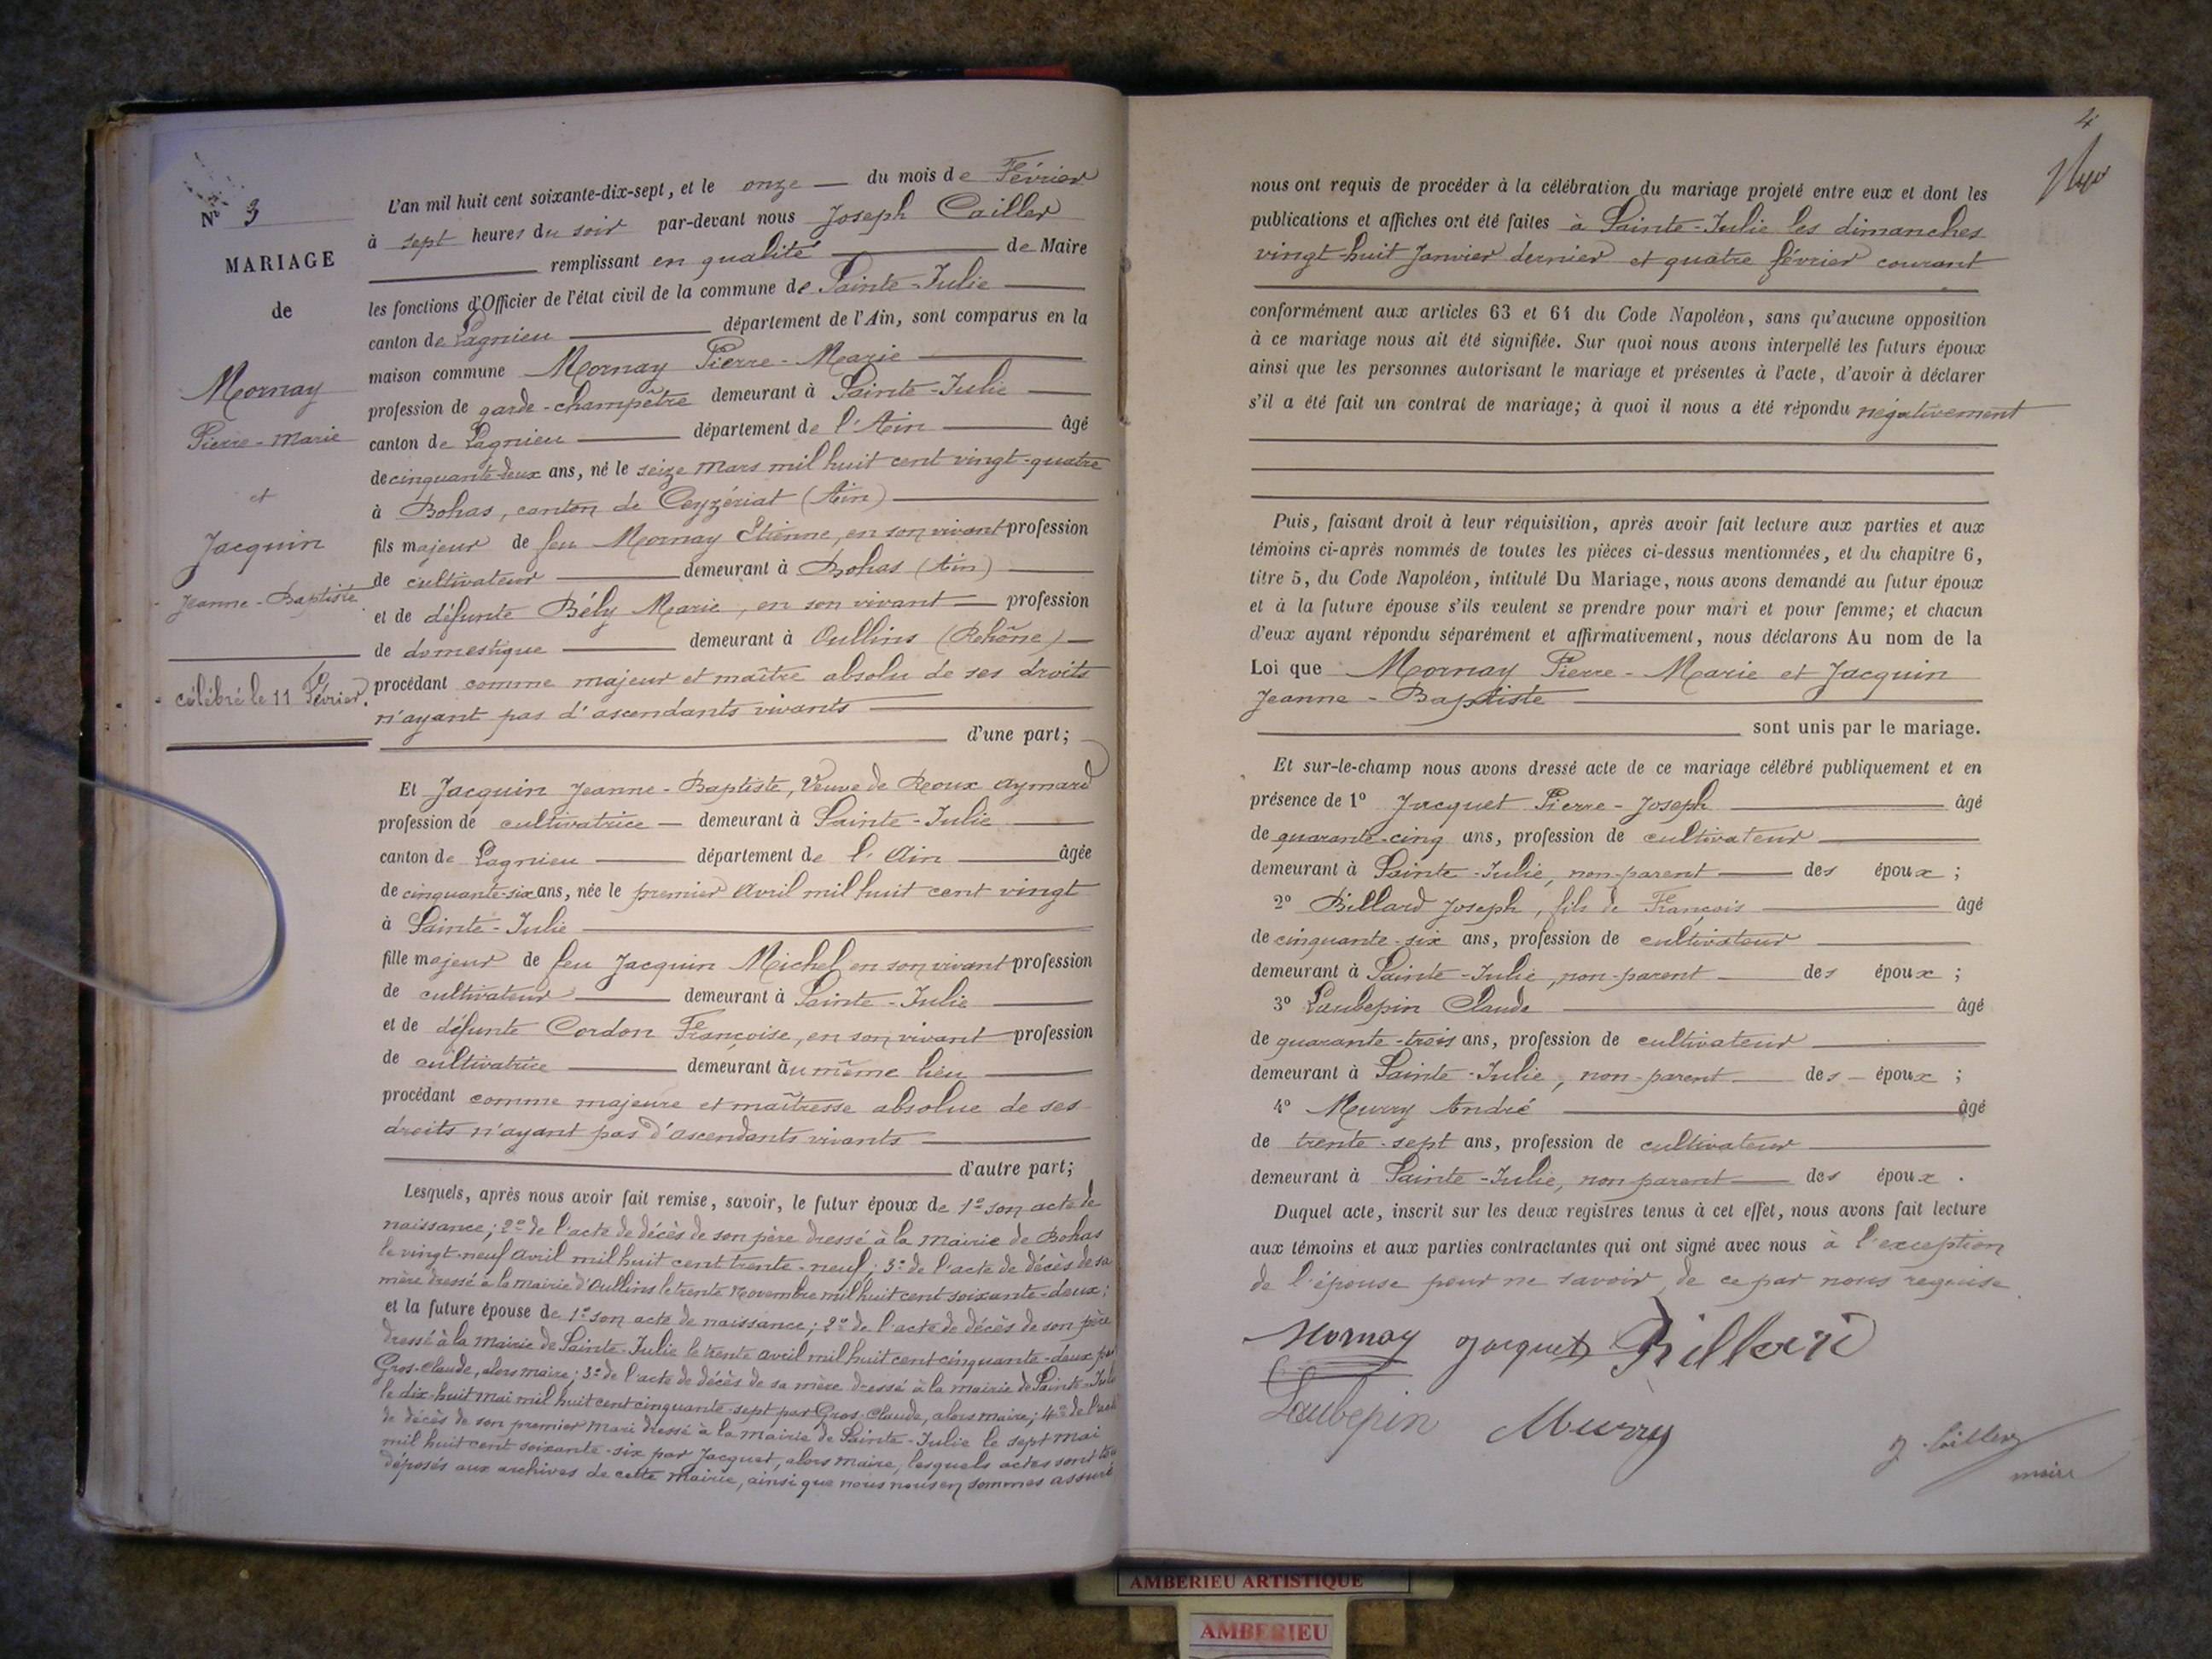 N° 3
MARIAGE
de
Mornay
Pierre-Marie
et
Jacquin
Jeanne-Baptiste
célébré le 11 Février.
L'an mil huit cent soixante-dix-sept, et le onze du mois de Février
à sept heures du soir par-devant nous Joseph Cailler
remplissant en qualité de Maire
les fonctions d'Officier de l'état civil de la commune de Sainte-Julie
canton de Lagnieu département de l'Ain, sont comparus en la
maison commune Mornay Pierre-Marie
profession de garde-champêtre demeurant à Sainte-Julie
canton de Lagnieu département de l'Ain âgé
de cinquante-deux ans, né le seize Mars mil huit cent vingt-quatre
à Bohas, canton de Ceyzériat (Ain)
fils majeur de feu Mornay Etienne, en son vivant profession
de cultivateur demeurant à Bohas (Ain)
et de défunte Bély Marie, en son vivant profession
de domestique demeurant à Oullins (Rhône)
procédant comme majeur et maître absolu de ses droits
n'ayant pas d'ascendants vivants
d'une part;
Et Jacquin Jeanne-Baptiste, Veuve de Roux Aymard
profession de cultivatrice demeurant à Sainte-Julie
canton de Lagnieu département de l'Ain âgée
de cinquante-six ans, née le premier Avril mil huit cent vingt
à Sainte-Julie
fille majeur de feu Jacquin Michel en son vivant profession
de cultivateur demeurant à Sainte-Julie
et de défunte Cordon Françoise, en son vivant profession
de cultivatrice demeurant au même lieu
procédant comme majeure et maîtresse absolue de ses
droits n'ayant pas d'ascendants vivants
d'autre part;
Lesquels, après nous avoir fait remise, savoir, le futur époux de 1° son acte de
naissance; 2° de l'acte de décès de son père dressé à la Mairie de Bohas
le vingt-neuf Avril mil huit cent trente-neuf; 3° de l'acte de décès de sa
mère dressé à la Mairie d'Oullins le trente Novembre mil huit cent soixante-deux;
et la future épouse de 1° son acte de naissance; 2° de l'acte de décès de son père
dressé à la Mairie de Sainte-Julie le trente Avril mil huit cent cinquante-deux par
Gros-Claude, alors maire; 3° de l'acte de décès de sa mère dressé à la mairie de Sainte-Julie
le dix-huit Mai mil huit cent cinquante-sept par Gros-Claude, alors maire; 4° de l'acte
de décès de son premier Mari dressé à la mairie de Sainte-Julie le sept Mai
mil huit cent soixante-six par Jacquet, alors maire, lesquels actes sont
déposés aux archives de cette Mairie, ainsi que nous nous en sommes assuré
4
nous ont requis de procéder à la célébration du mariage projeté entre eux et dont les
publications et affiches ont été faites à Sainte-Julie les dimanches
vingt-huit Janvier dernier et quatre février courant
conformément aux articles 63 et 64 du Code Napoléon, sans qu'aucune opposition
à ce mariage nous ait été signifiée. Sur quoi nous avons interpellé les futurs époux
ainsi que les personnes autorisant le mariage et présentes à l'acte, d'avoir à déclarer
s'il a été fait un contrat de mariage; à quoi il nous a été répondu négativement
Puis, faisant droit à leur réquisition, après avoir fait lecture aux parties et aux
témoins ci-après nommés de toutes les pièces ci-dessus mentionnées, et du chapitre 6,
titre 5, du Code Napoléon, intitulé Du Mariage, nous avons demandé au futur époux
et à la future épouse s'ils veulent se prendre pour mari et pour femme; et chacun
d'eux ayant répondu séparément et affirmativement, nous déclarons Au nom de la
Loi que Mornay Pierre-Marie et Jacquin
Jeanne-Baptiste
sont unis par le mariage.
Et sur-le-champ nous avons dressé acte de ce mariage célébré publiquement et en
présence de 1° Jacquet Pierre-Joseph âgé
de quarante-cinq ans, profession de cultivateur
demeurant à Sainte-Julie, non-parent des époux;
2° Billard Joseph, fils de François âgé
de cinquante-six ans, profession de cultivateur
demeurant à Sainte-Julie, non-parent des époux;
3° Laubepin Claude âgé
de quarante-trois ans, profession de cultivateur
demeurant à Sainte-Julie, non-parent des époux;
4° Murry André âgé
de trente-sept ans, profession de cultivateur
demeurant à Sainte-Julie, non parent des époux.
Duquel acte, inscrit sur les deux registres tenus à cet effet, nous avons fait lecture
aux témoins et aux parties contractantes qui ont signé avec nous à l'exception
de l'épouse pour ne savoir, de ce par nous requise.
Mornay Jacquet Billard
Laubepin Murry
J. Cailler
maire
AMBERIEU ARTISTIQUE
AMBERIEU